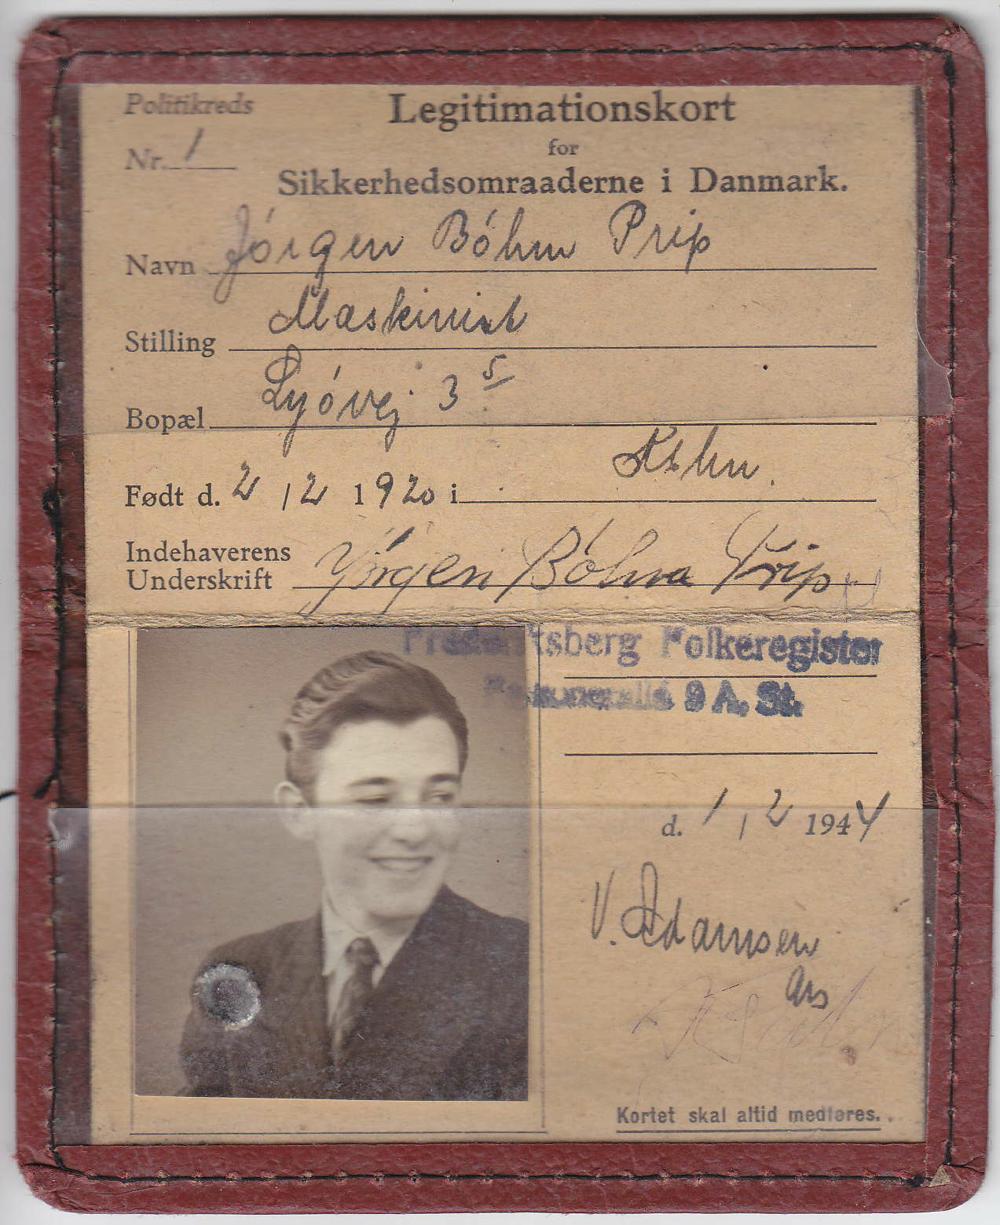 Politikreds
Nr. 1
Legitimationskort
for
Sikkerhedsomraaderne i Danmark.
Navn Jórgen Bóhm Prip
Stilling Maskinist
Bopæl Lyóvej 3 5
Født d. 2/12 1920 i Kbhn.
Indehaverens
Underskrift Jórgen Bóhm Prip
Frederiksberg Folkeregister
9 A, St.
d. 1/2 1944
V. Adamsen
Kortet skal altid medføres.